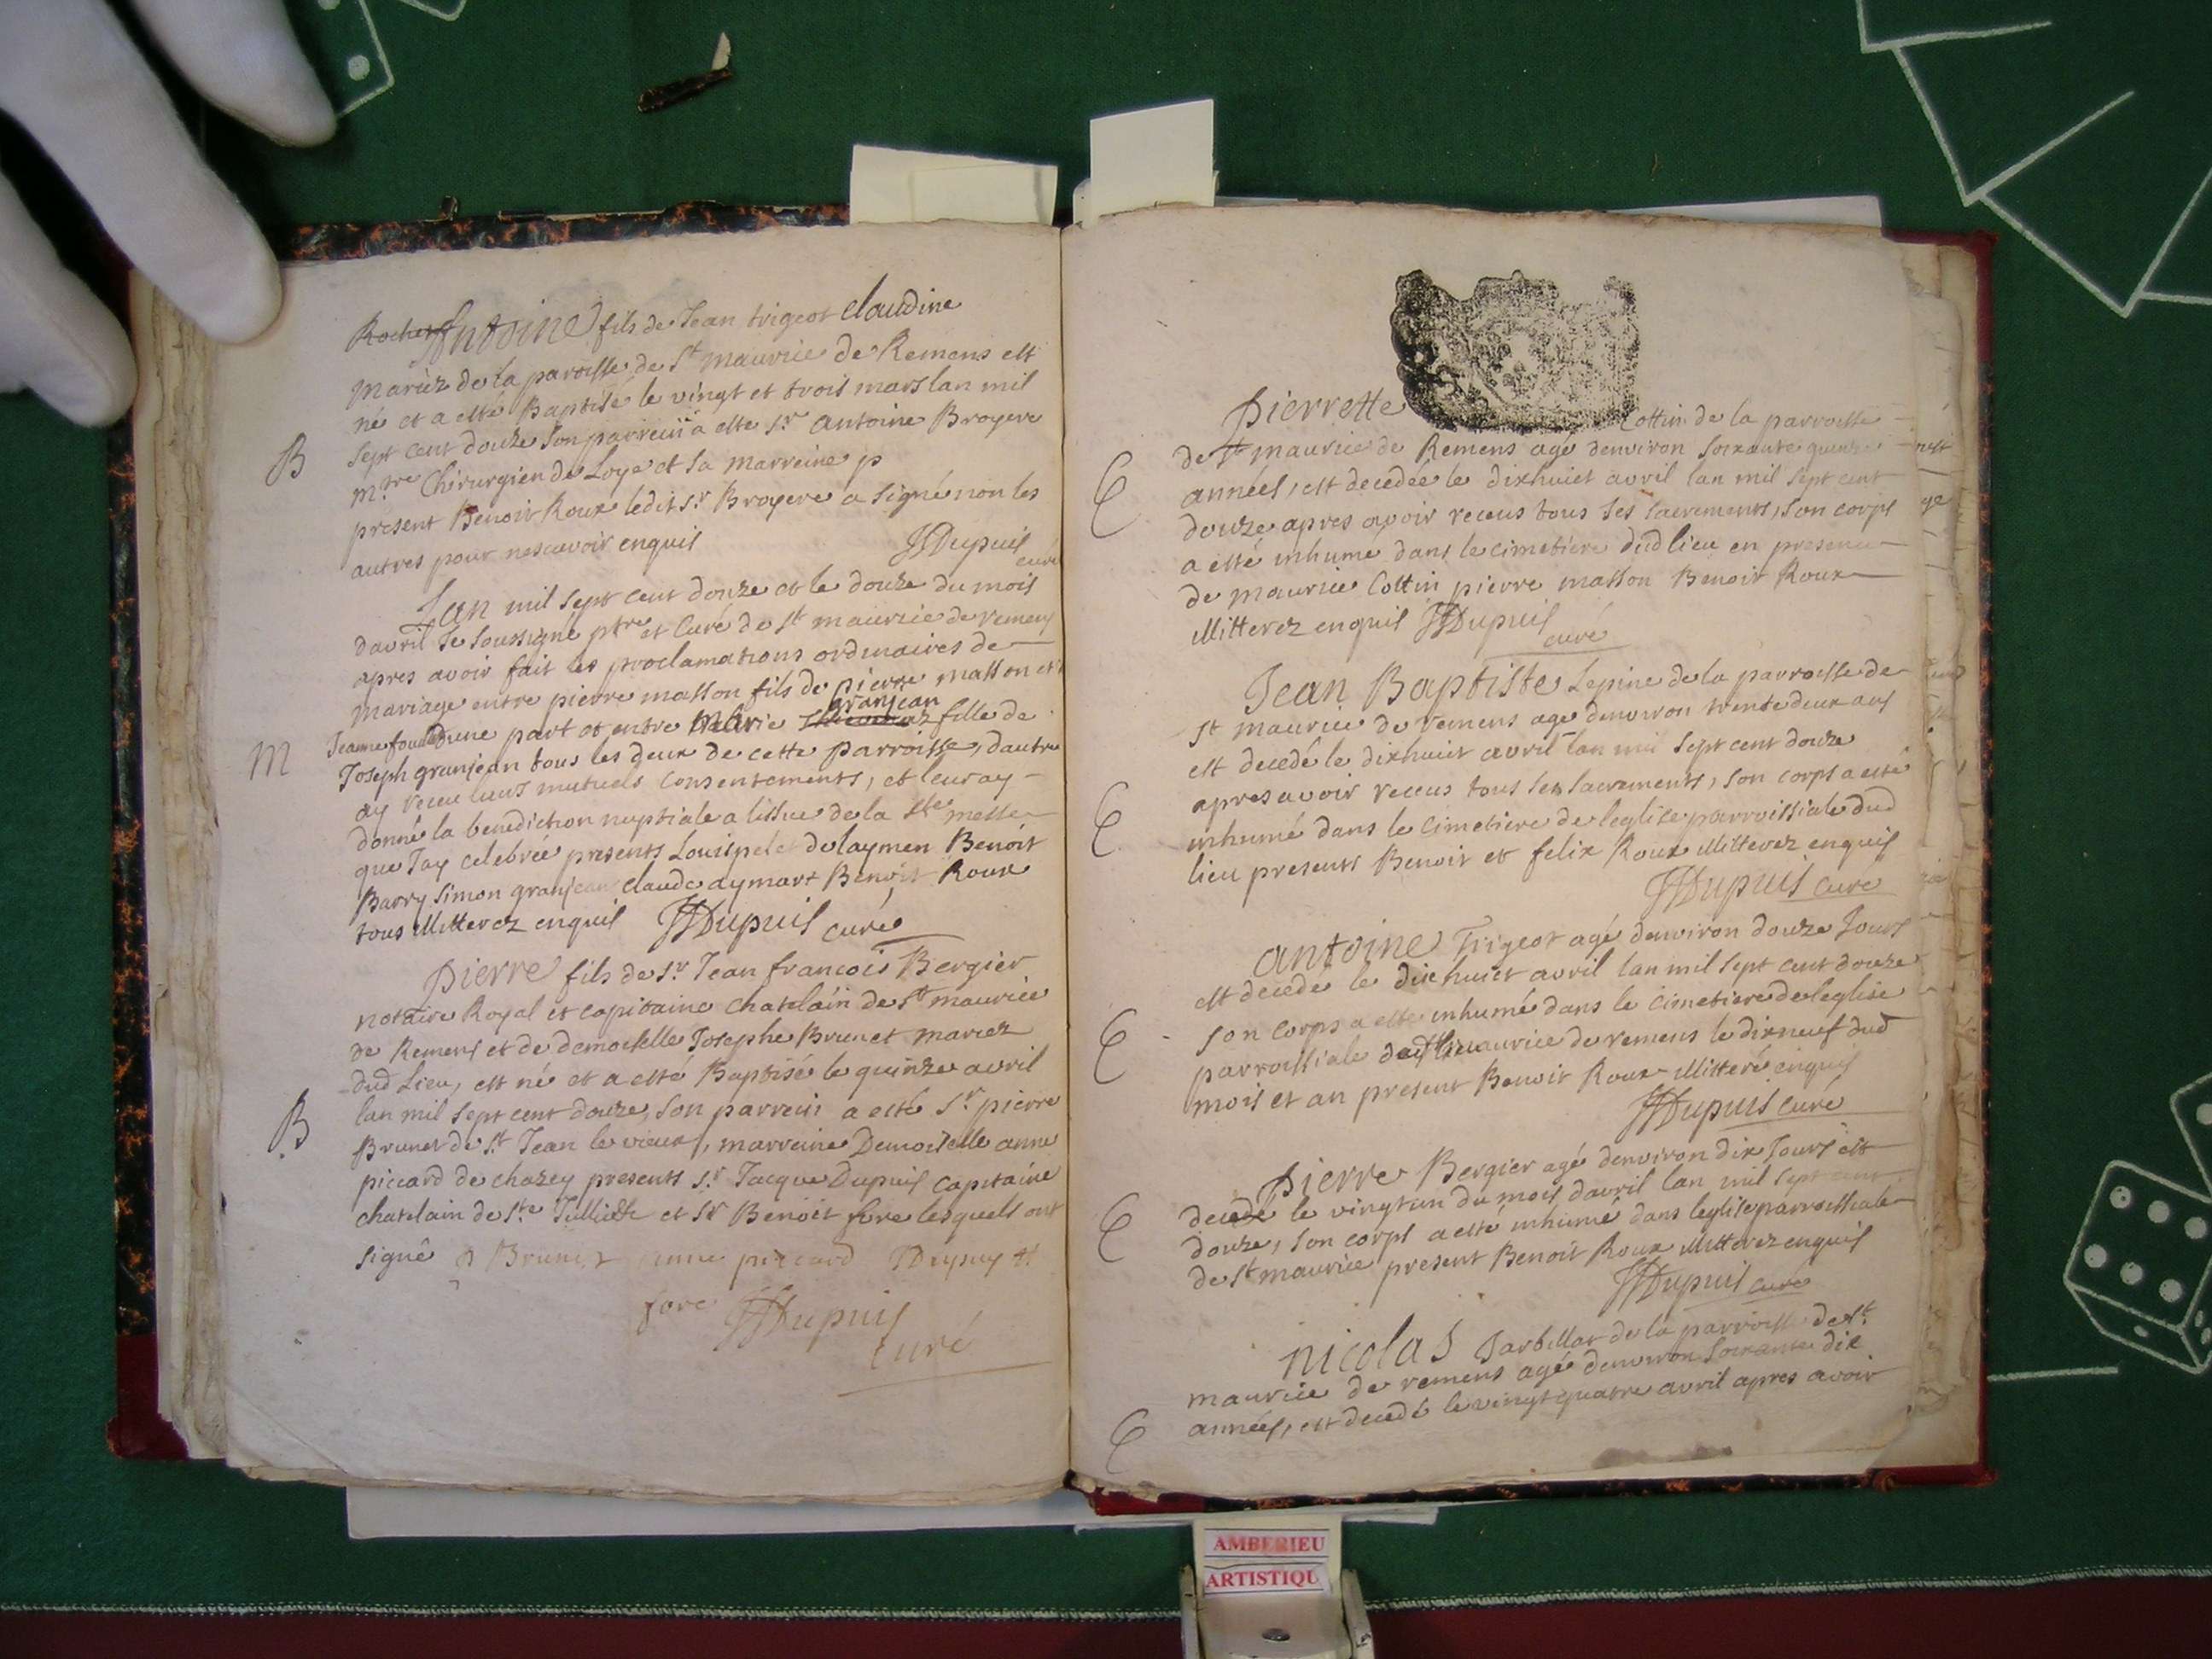 Antoine fils de Jean trigeot Claudine
Rochet
mariez de la paroisse de St maurice de Remens est
né et a esté Baptisé le vingt et trois mars lan mil
B
sept cent douze son parrein a este Sr Antoine Broyere
mtre Chirurgien de Loye et sa marreine p
present Benoit Roux ledit Sr Broyere a signé non les
autres pour nescavoir enquis JJDupuis
curé
Lan mil sept cent douze et le douze du mois
davril Je soussigné ptre et Curé de St maurice de remens
apres avoir fait les proclamations ordinaires de
mariage entre pierre masson fils de pierre masson et
granjean
Jeanne dune part et entre Marie fille de
M
Joseph granjean tous les deux de cette parroisse, dautre
ay receu leurs mutuels Consentements, et leur ay
donné la benediction nuptiale a lissue de la Ste messe
que Jay celebree presents Louis delaymen Benoit
Barry Simon granjean Claude aymart Benoit Roux
tous illitterez enquis JJDupuis curé
Pierre fils de Sr Jean francois Bergier
notaire Royal et capitaine chatelain de St maurice
de Remens et de demoiselle Josephe Brunet mariez
dud Lieu, est né et a esté Baptisé le quinze avril
lan mil sept cent douze, son parrein a esté Sr pierre
B
Brunet de St Jean le vieux, marreine Demoiselle anne
piccard de chazey presents Sr Jacque Dupuis Capitaine
chatelain de Ste Jullie et Sr Benoit fore lesquels ont
signé P Brunet anne piccard JDupuy
fore JJDupuis
curé
Pierrette Cottin de la parroisse
de St maurice de Remens agé denviron soixante quinze
E
années, est decedée le dixhuict avril lan mil sept cent
douze apres avoir receus tous ses sacrements, son corps
a esté inhumé dans le cimetiere dud lieu en presence
de maurice Cottin pierre masson Benoit Roux
illitterez enquis JJDupuis
curé
Jean Baptiste Lepine de la parroisse de
St maurice de remens agé denviron trente deux ans
est decedé le dixhuit avril lan mil sept cent douze
E
apres avoir receus tous ses sacrements, son corps a esté
inhumé dans le cimetiere de leglise parroissiale dud
lieu presents Benoit et felix Roux illitterez enquis
JJDupuis curé
antoine Trigeot agé denviron douze Jours
est decedé le dixhuict avril lan mil sept cent douze
E
son corps a esté inhumé dans le cimetiere de leglise
parroissiale de St maurice de remens le dixneuf dud
mois et an present Benoit Roux illitteré enquis
JJDupuis curé
Pierre Bergier agé denviron dix Jours est
decedé le vingtun du mois davril lan mil sept cent
E
douze, son corps a esté inhumé dans leglise parroissiale
de St maurice present Benoit Roux illitterez enquis
JJDupuis curé
nicolas Jarbillat de la parroisse de St
maurice de remens agé denviron soixante dix
E
années, est decedé le vingt quatre avril apres avoir
AMBERIEU
ARTISTIQU